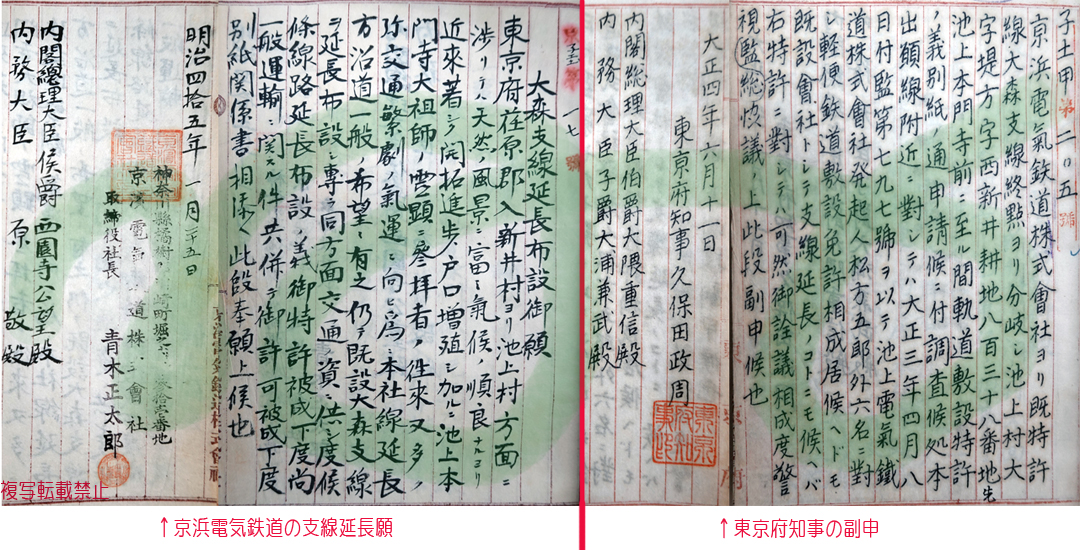 子土甲第二〇五號
京浜電氣鉄道株式會社ヨリ既特許
線大森支線終點ヨリ分岐シ池上村大
字堤方字西新井耕地八百三十八番地先
池上本門寺前ニ至ル間軌道敷設特許
ノ義別紙ノ通申請候ニ付調査候処本
出願線附近ニ對シテハ大正三年四月八
日付監第七九七號ヲ以テ池上電氣鐵
道株式會社発起人松方五郎外六名ニ對
シ軽便鉄道敷設免許相成居候ヘドモ
既設會社トシテ支線延長ノコトニモ候ヘバ
右特許ニ對シテ可然御詮議相成度警
視監総
議ノ上此段副申候也
大正四年六月十一日
東京府知事久保田政周
東京府知事印
内閣総理大臣伯爵大隈重信殿
内務大臣子爵大浦兼武殿
大森支線延長布設御願
東京府荏原郡入新井村ヨリ池上村方面ニ
渉リテハ天然ノ風景ニ富ミ氣候ノ順良ナルヨリ
近來著シク開拓進歩ノ戸口増殖シ加ルニ池上本
門寺大祖師ノ霊顕ニ參拝者ノ徃來又多ク
弥交通繁劇ノ氣運ニ向ヒ為ニ本社線延長
方沿道一般ノ希望モ有之仍テ既設大森支線
ヲ延長布設シ專ラ同方面交通ノ資ニ供シ度候
條線路延長布設ノ義御特許被成下度尚
一般運輸ニ関スル件モ共ニ併テ御許可被成下度
別紙関係書相添ヘ此段奉願上候也
明治四拾五年一月二十五日
神奈川縣橘樹
京濱電氣鉄道株式會社
取締役社長 青木正太郎
内閣總理大臣侯爵西園寺公望殿
内務大臣 原敬殿
複写転載禁止
↑京浜電気鉄道の支線延長願
↑東京府知事の副申